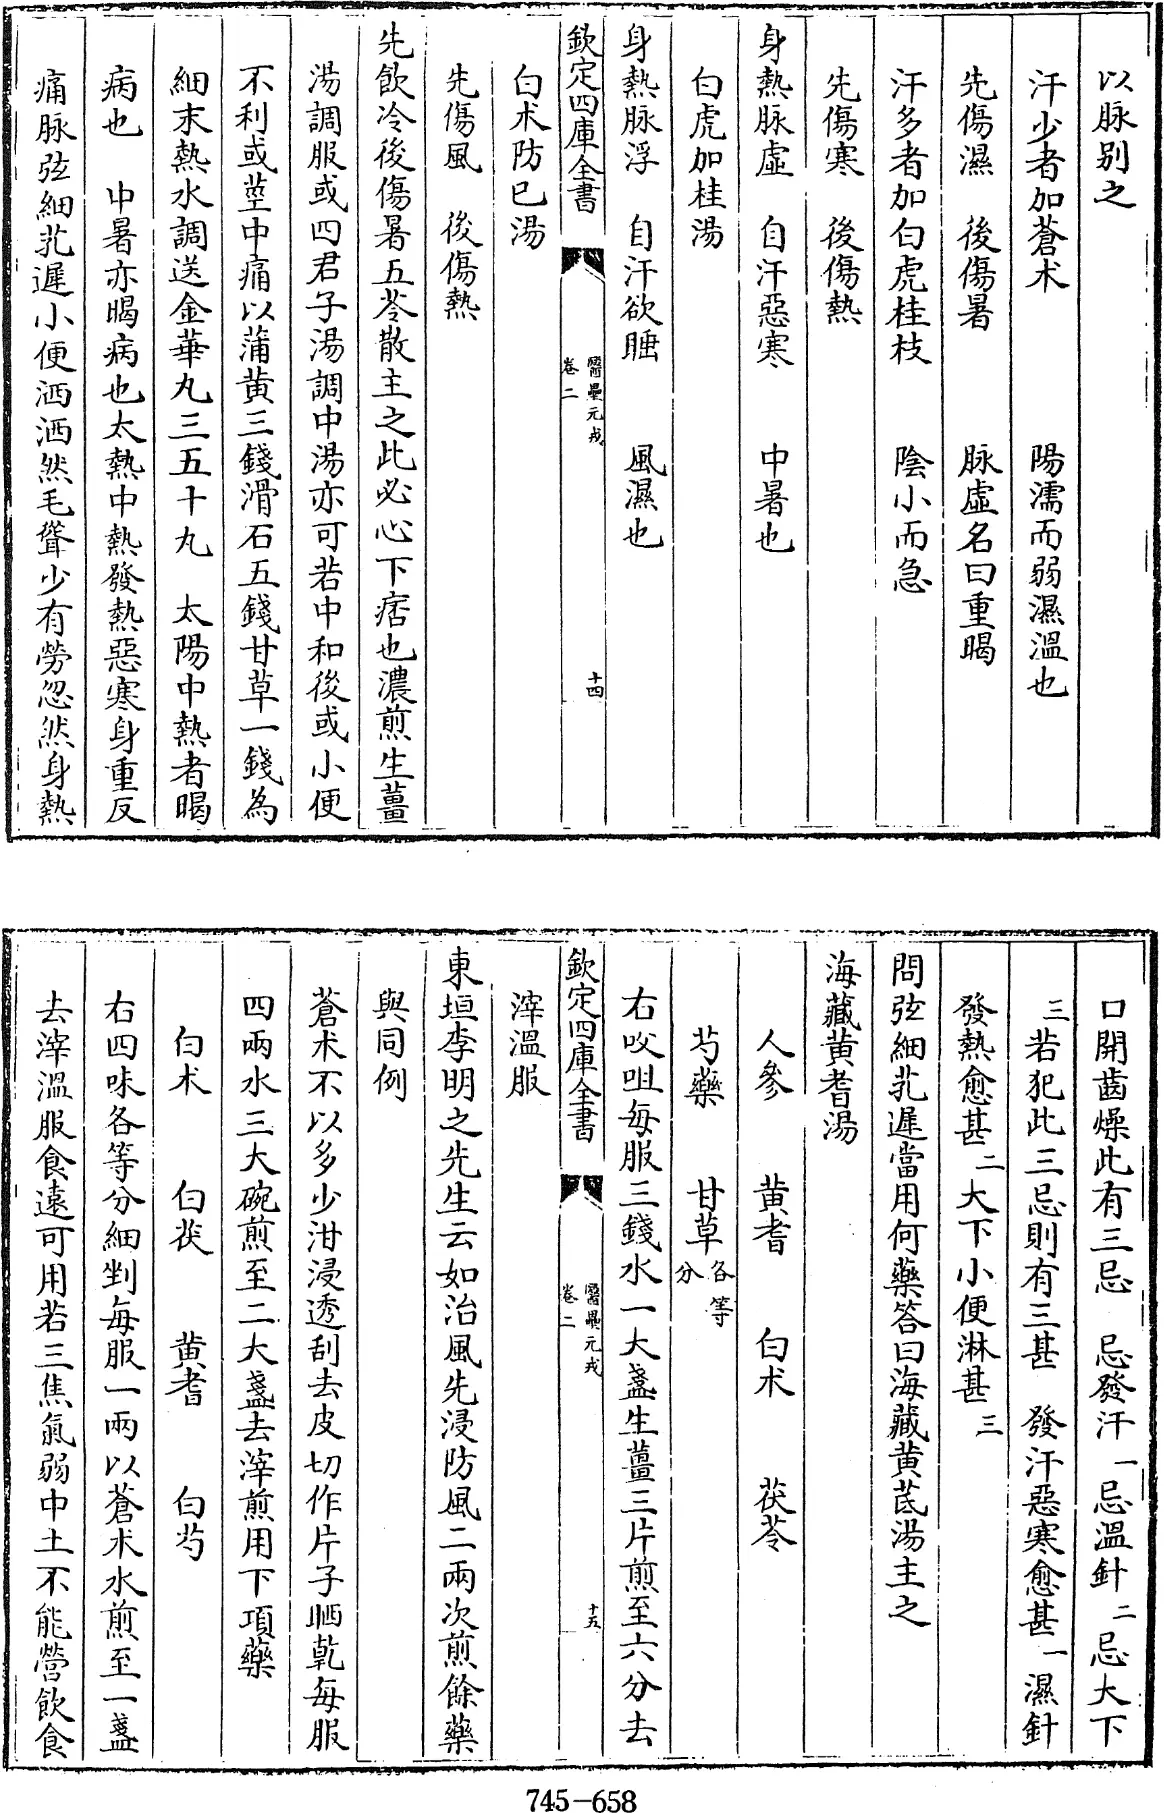 以脉别之
汗少者加蒼术　陽濡而弱濕溫也
先傷濕　後傷暑　脉虛名曰重暍
汗多者加白虎桂枝　陰小而急
先傷寒　後傷熱
身熱脉虛　自汗惡寒　中暑也
白虎加桂湯
身熱脉浮　自汗欲睡　風濕也
欽定四庫全書　醫壘元戎　卷二　十四
白术防已湯
先傷風　後傷熱
先飲冷後傷暑五苓散主之此必心下痞也濃煎生薑
湯調服或四君子湯調中湯亦可若中和後或小便
不利或莖中痛以蒲黄三錢滑石五錢甘草一錢為
細末熱水調送金華丸三五十丸　太陽中熱者暍
病也　中暑亦暍病也太熱中熱發熱惡寒身重反
痛脉弦細芤遲小便洒洒然毛聳少有勞忽然身熱
口開齒燥此有三忌　忌發汗一忌溫針二忌大下
三若犯此三忌則有三甚　發汗惡寒愈甚一濕針
發熱愈甚二大下小便淋甚三
問弦細芤遲當用何藥答曰海藏黄芪湯主之
海藏黄耆湯
人參　黄耆　白术　茯苓
芍藥　甘草各等分
右㕮咀每服三錢水一大盞生薑三片煎至六分去
欽定四庫全書　醫壘元戎　卷二　十五
滓溫服
東垣李明之先生云如治風先浸防風二兩次煎餘藥
與同例
蒼术不以多少泔浸透刮去皮切作片子晒乾每服
四兩水三大碗煎至二大盞去滓煎用下項藥
白术　白茯　黄耆　白芍
右四味各等分細剉每服一兩以蒼术水煎至一盞
去滓溫服食遠可用若三焦氣弱中土不能營飲食
745-658